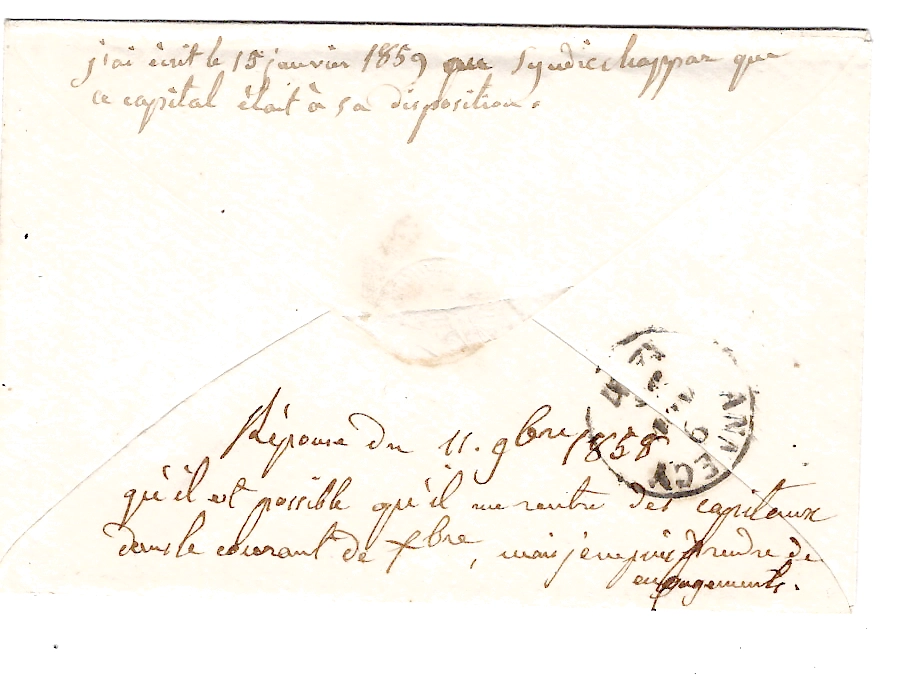 j'ai écrit le 15 janvier 1859 au Syndic chappaz que
ce capital était à sa disposition.
ANNECY
Réponse du 11. 9bre 1858
qu'il est possible qu'il me rentre des capitaux
dans le courant de Xbre, mais je ne puis prendre de
engagements.